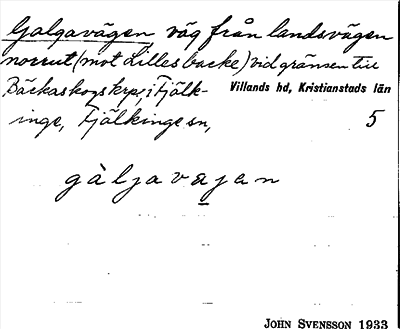 Galgavägen väg från landsvägen
norrut (mot Lillesbacke) vid gränsen till
Bäckaskogs krp, i Fjälk-
Villands hd, Kristianstads län
inge, Fjälkinge sn,
5
gàljavajan
JOHN SVENSSON 1933